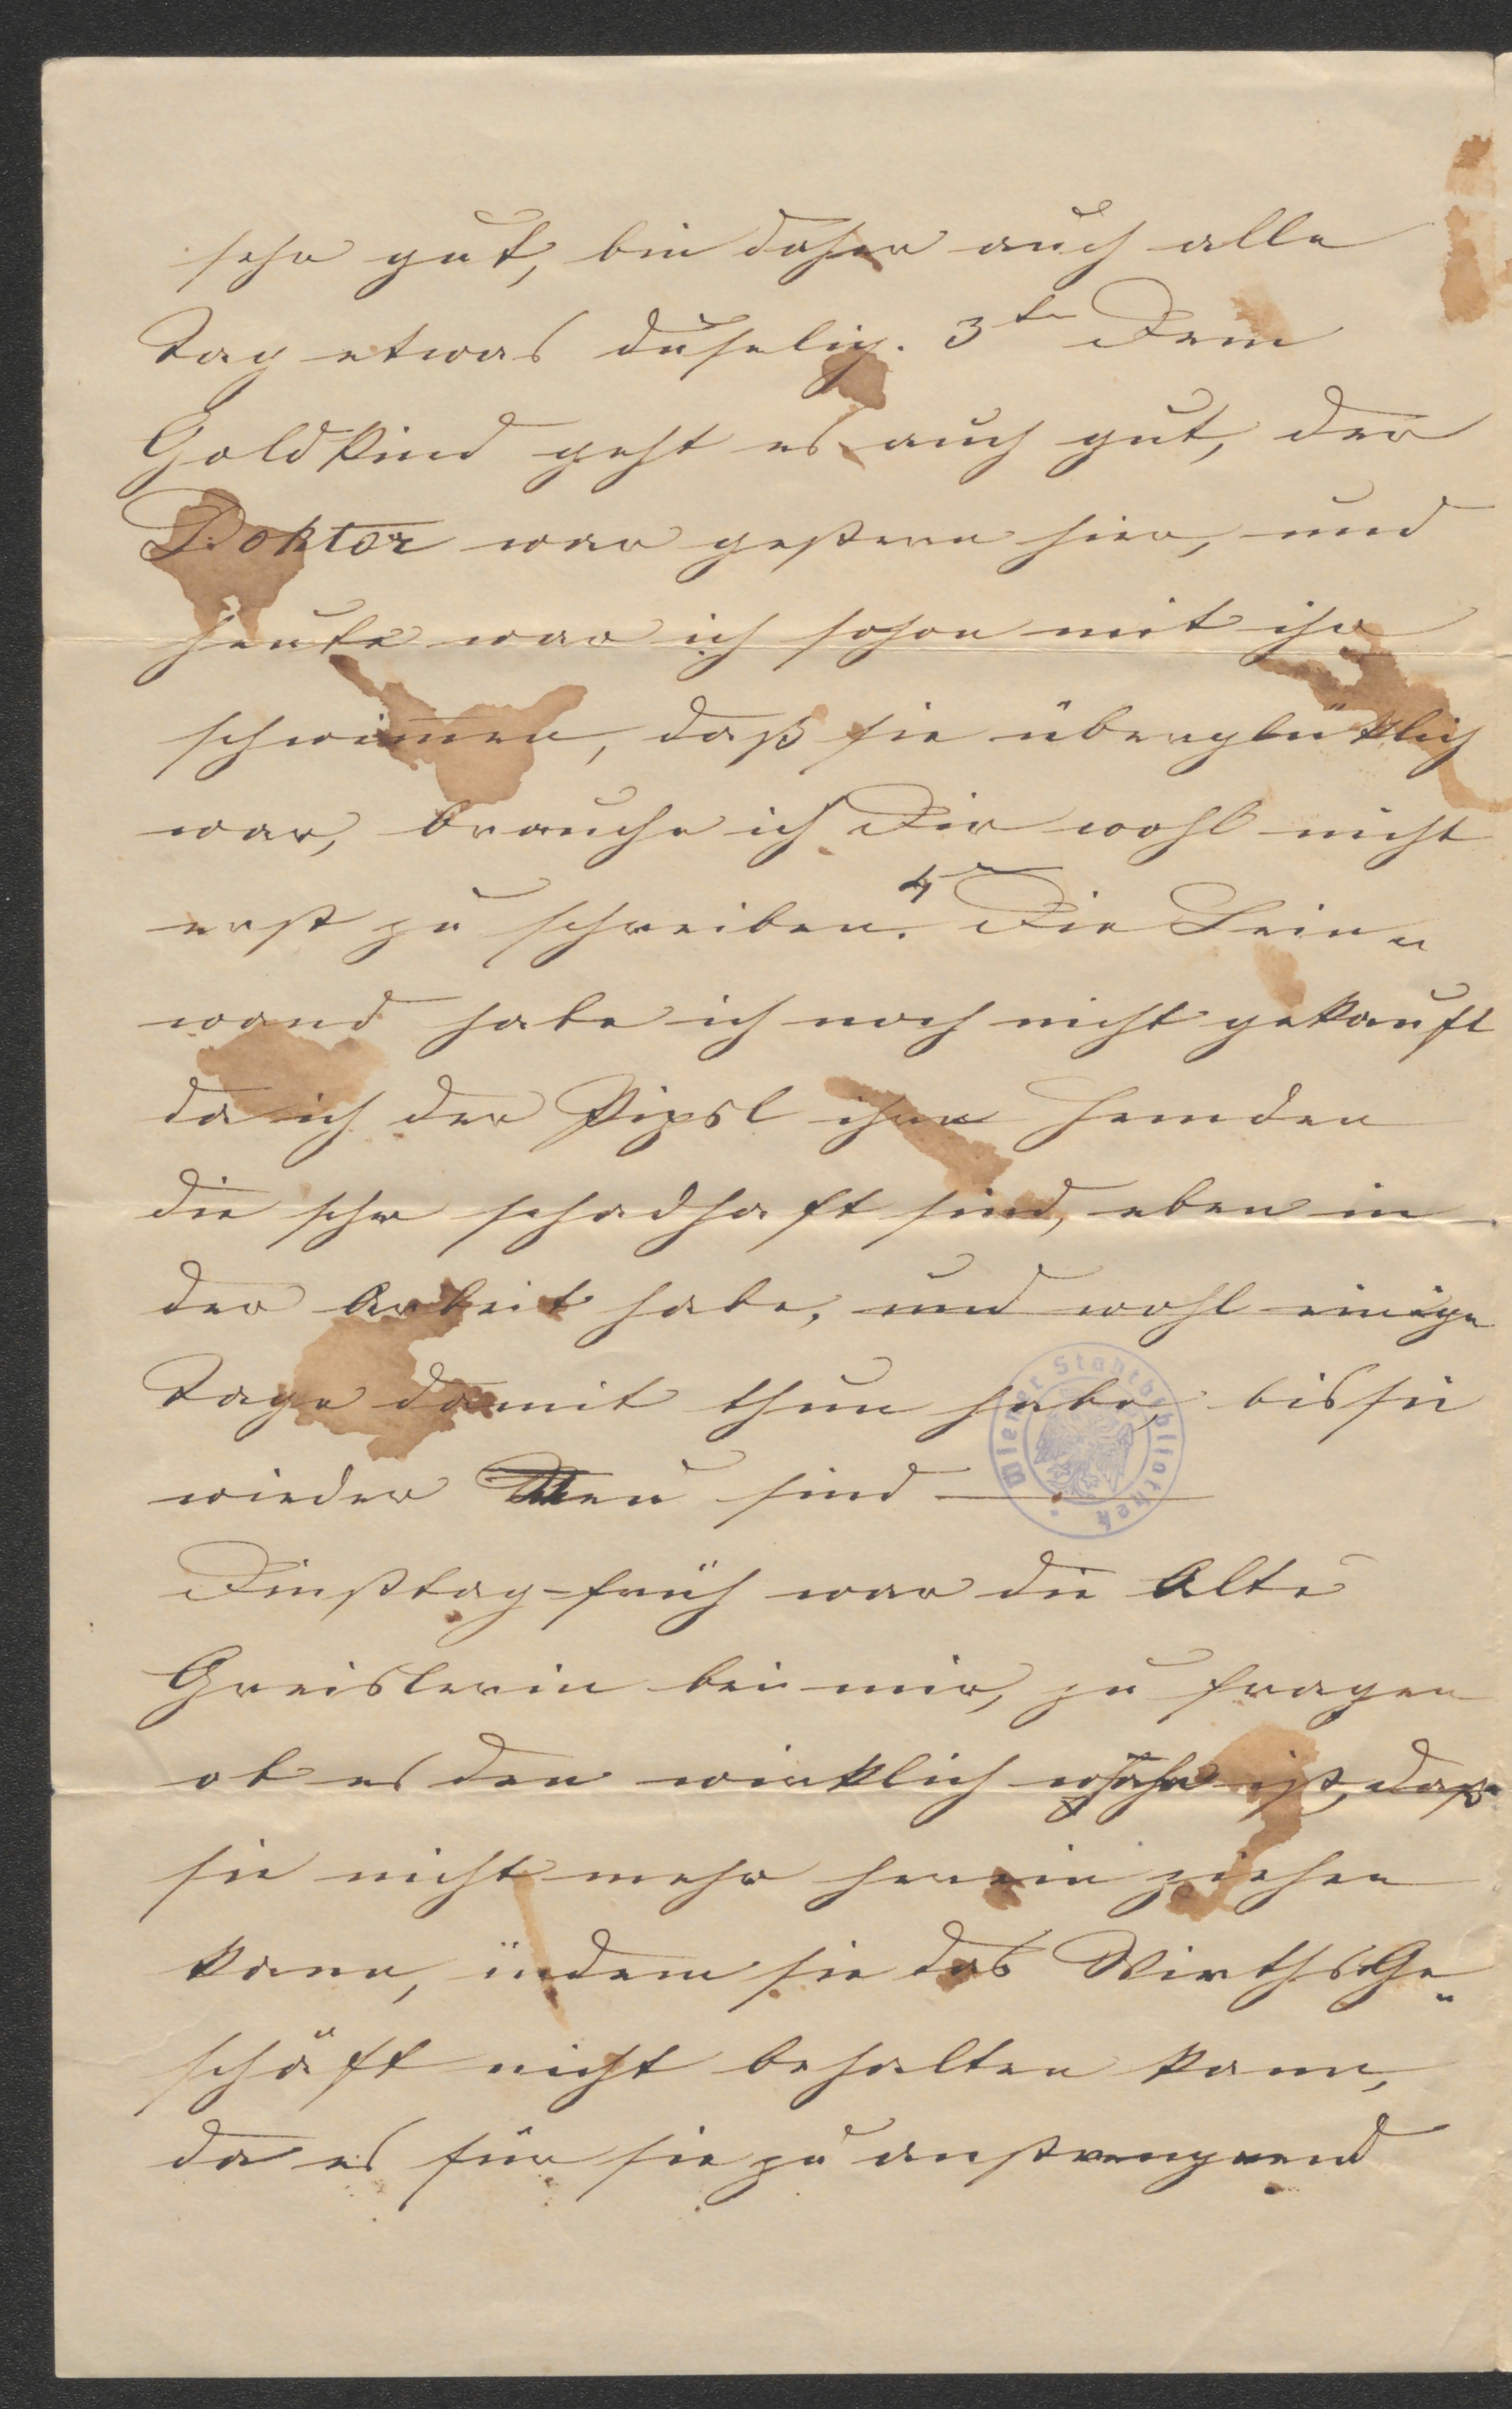 sehr gut, bin daher auch alle
Tag etwas duselig. 3te Dem
Goldkind geht es auch gut, der
Doktor war gestern hier, und
heute war ich schon mit ihr
schwimen, daß sie überglüklich
war, brauche ich Dir wohl nicht
erst zu schreiben. 4 Die Lein„
wand habe ich noch nicht gekauft
da ich der Pipsl ihre Hemden
die sehr schadhaft sind, eben in
der Arbeit habe, und wohl einige
Tage damit thun habe, bis sie
wieder Neu sind
Dinßtag-früh war die Alte
Greislerin bei mir, zu fragen
ob es den wirklich wahr ist, daß
sie nicht mehr herein ziehen
kann, indem sie das WirthsGe„
schäft nicht behalten kann,
da es für sie zu anstrengend
Wiener Stadtbibliothek